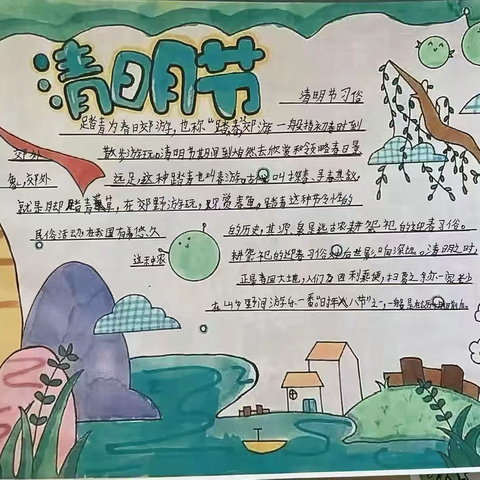 清明节
清明节习俗
踏青为春日郊游，也称“踏春郊游 一般指初春时到
郊外 散步游玩。清明节期间到大自然去欣赏和领略春日景
象，郊外 远足，这种踏青也叫春游。古 叫探春、寻春
就是脚踏青草，在郊野游玩，观赏春色。踏青这种节令性的
民俗活动在我国有着悠久 的历史，其源 是远古农耕祭祀的迎春习俗。
这种农 耕祭祀的迎春习俗 后世影响深远。清明之时，
正是春回大地，人们 利 便，扫墓之 一家老少
在山乡野间游乐一番。“时年八节”之一，一般是在